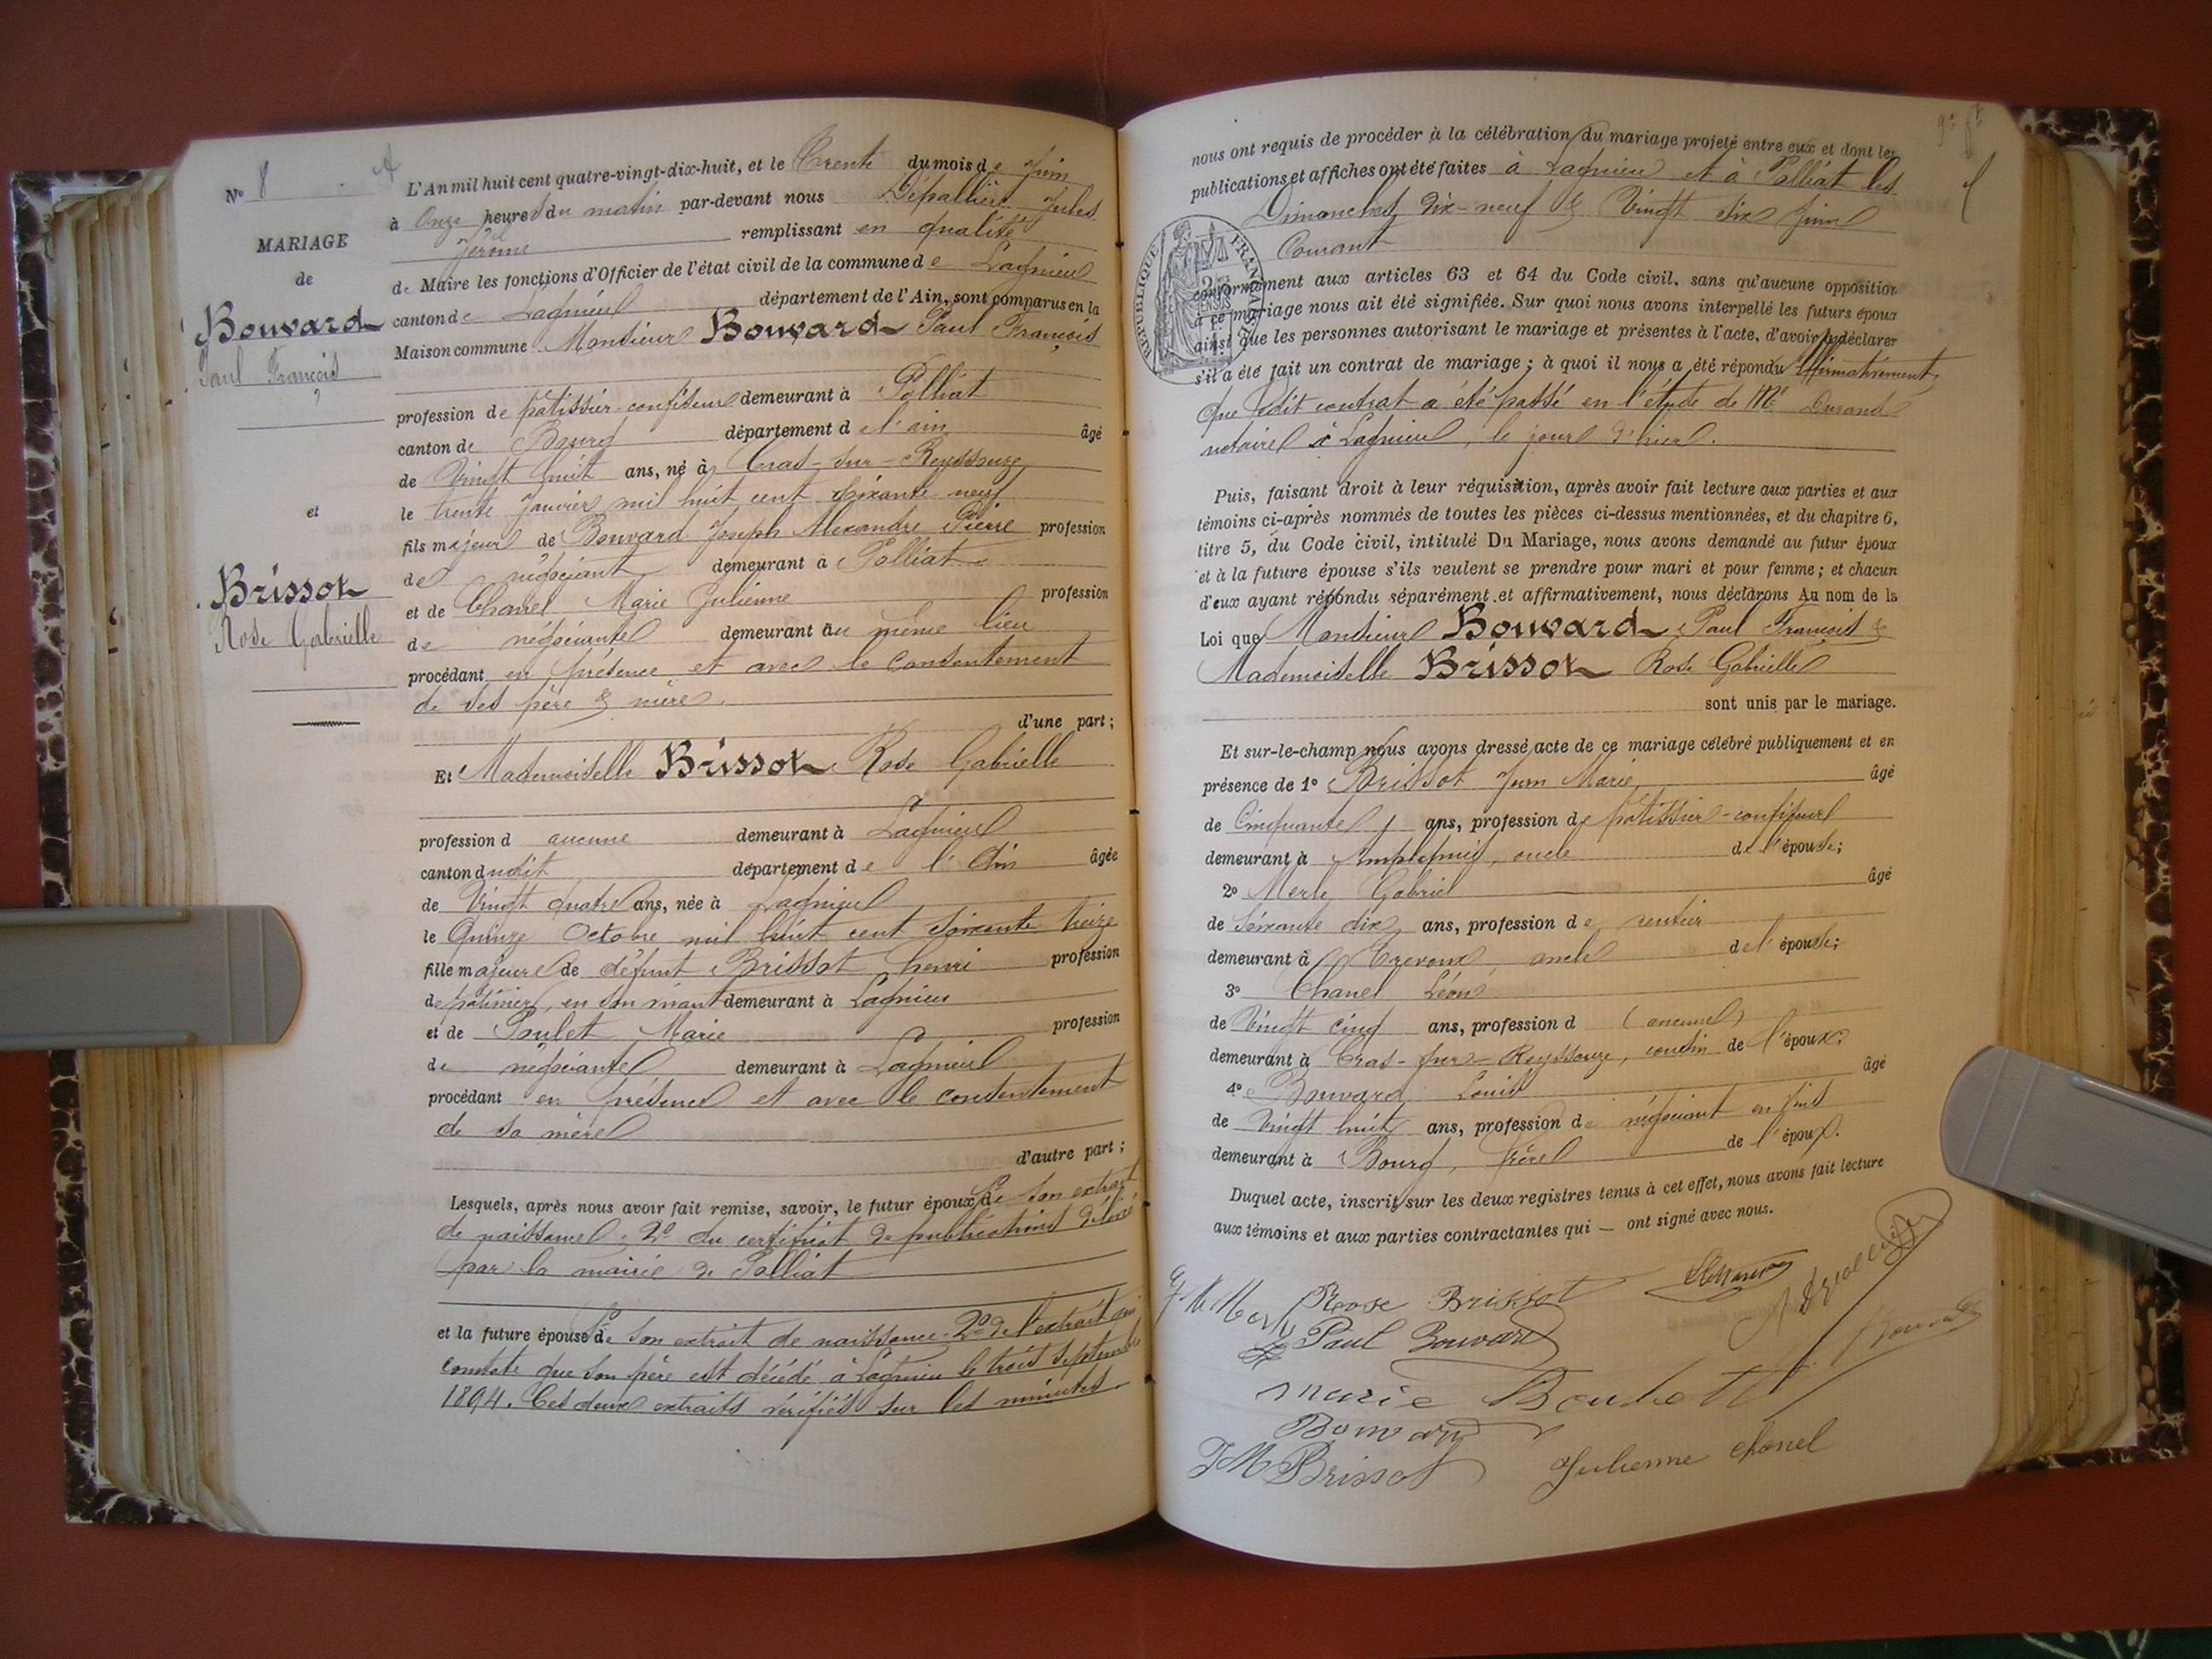 N° 8
MARIAGE
de
Bouvard
Paul François
et
Brissot
Rose Gabrielle
L'An mil huit cent quatre-vingt-dix-huit, et le Trente du mois de Juin
à Onze heures du matin par-devant nous Dépallière Jules
Jérôme remplissant en qualité
de Maire les fonctions d'Officier de l'état civil de la commune de Lagnieu
canton de Lagnieu département de l'Ain, sont comparus en la
Maison commune Monsieur Bouvard Paul François
profession de pâtissier-confiseur demeurant à Polliat
canton de Bourg département de l'ain âgé
de Vingt huit ans, né à Cras-sur-Reyssouze
le trente Janvier mil huit cent soixante neuf
fils majeur de Bouvard Joseph Alexandre Pierre profession
de négociant demeurant à Polliat
et de Chanel Marie Julienne profession
de négociante demeurant au même lieu
procédant en présence et avec le consentement
de ses père & mère.
d'une part ;
Et Mademoiselle Brissot Rose Gabrielle
profession d aucune demeurant à Lagnieu
canton dudit département de l'Ain âgée
de Vingt quatre ans, née à Lagnieu
le Quinze Octobre mil huit cent soixante treize
fille majeure de défunt Brissot henri profession
de pâtissier, en son vivant demeurant à Lagnieu
et de Poulet Marie profession
de négociante demeurant à Lagnieu
procédant en présence et avec le consentement
de sa mère
d'autre part ;
Lesquels, après nous avoir fait remise, savoir, le futur époux 1° de son extrait
de naissance ; 2° du certificat de publications délivré
par la mairie de Polliat
et la future épouse 1° de son extrait de naissance. 2° de l'extrait qui
constate que son père est décédé à Lagnieu le trois septembre
1894. Ces deux extraits vérifiés sur les minutes
nous ont requis de procéder à la célébration du mariage projeté entre eux et dont les
publications et affiches ont été faites à Lagnieu et à Polliat les
Dimanches dix-neuf & Vingt six Juin
Courant
conformément aux articles 63 et 64 du Code civil, sans qu'aucune opposition
à ce mariage nous ait été signifiée. Sur quoi nous avons interpellé les futurs époux
ainsi que les personnes autorisant le mariage et présentes à l'acte, d'avoir à déclarer
s'il a été fait un contrat de mariage ; à quoi il nous a été répondu Affirmativement,
que ledit contrat a été passé en l'étude de Me Durand
notaire à Lagnieu, le jour d'hier.
Puis, faisant droit à leur réquisition, après avoir fait lecture aux parties et aux
témoins ci-après nommés de toutes les pièces ci-dessus mentionnées, et du chapitre 6,
titre 5, du Code civil, intitulé Du Mariage, nous avons demandé au futur époux
et à la future épouse s'ils veulent se prendre pour mari et pour femme ; et chacun
d'eux ayant répondu séparément et affirmativement, nous déclarons Au nom de la
Loi que Monsieur Bouvard Paul François &
Mademoiselle Brissot Rose Gabrielle
sont unis par le mariage.
Et sur-le-champ nous avons dressé acte de ce mariage célébré publiquement et en
présence de 1° Brissot Jean Marie âgé
de Cinquante ans, profession de pâtissier-confiseur
demeurant à Amplepuis, oncle de l'épouse ;
2° Merle Gabriel âgé
de Soixante dix ans, profession de rentier
demeurant à Trevoux, oncle de l'épouse ;
3° Chanel Léon
de Vingt cinq ans, profession d (aucune)
demeurant à Cras-sur-Reyssouze, cousin de l'époux ;
4° Bouvard Louis âgé
de Vingt huit ans, profession de négociant en vins
demeurant à Bourg, frère de l'époux.
Duquel acte, inscrit sur les deux registres tenus à cet effet, nous avons fait lecture
aux témoins et aux parties contractantes qui — ont signé avec nous.
Rose Brissot
Paul Bouvard
Marie Poulet
Bouvard
J M Brissot
Julienne Chanel
RÉPUBLIQUE FRANÇAISE